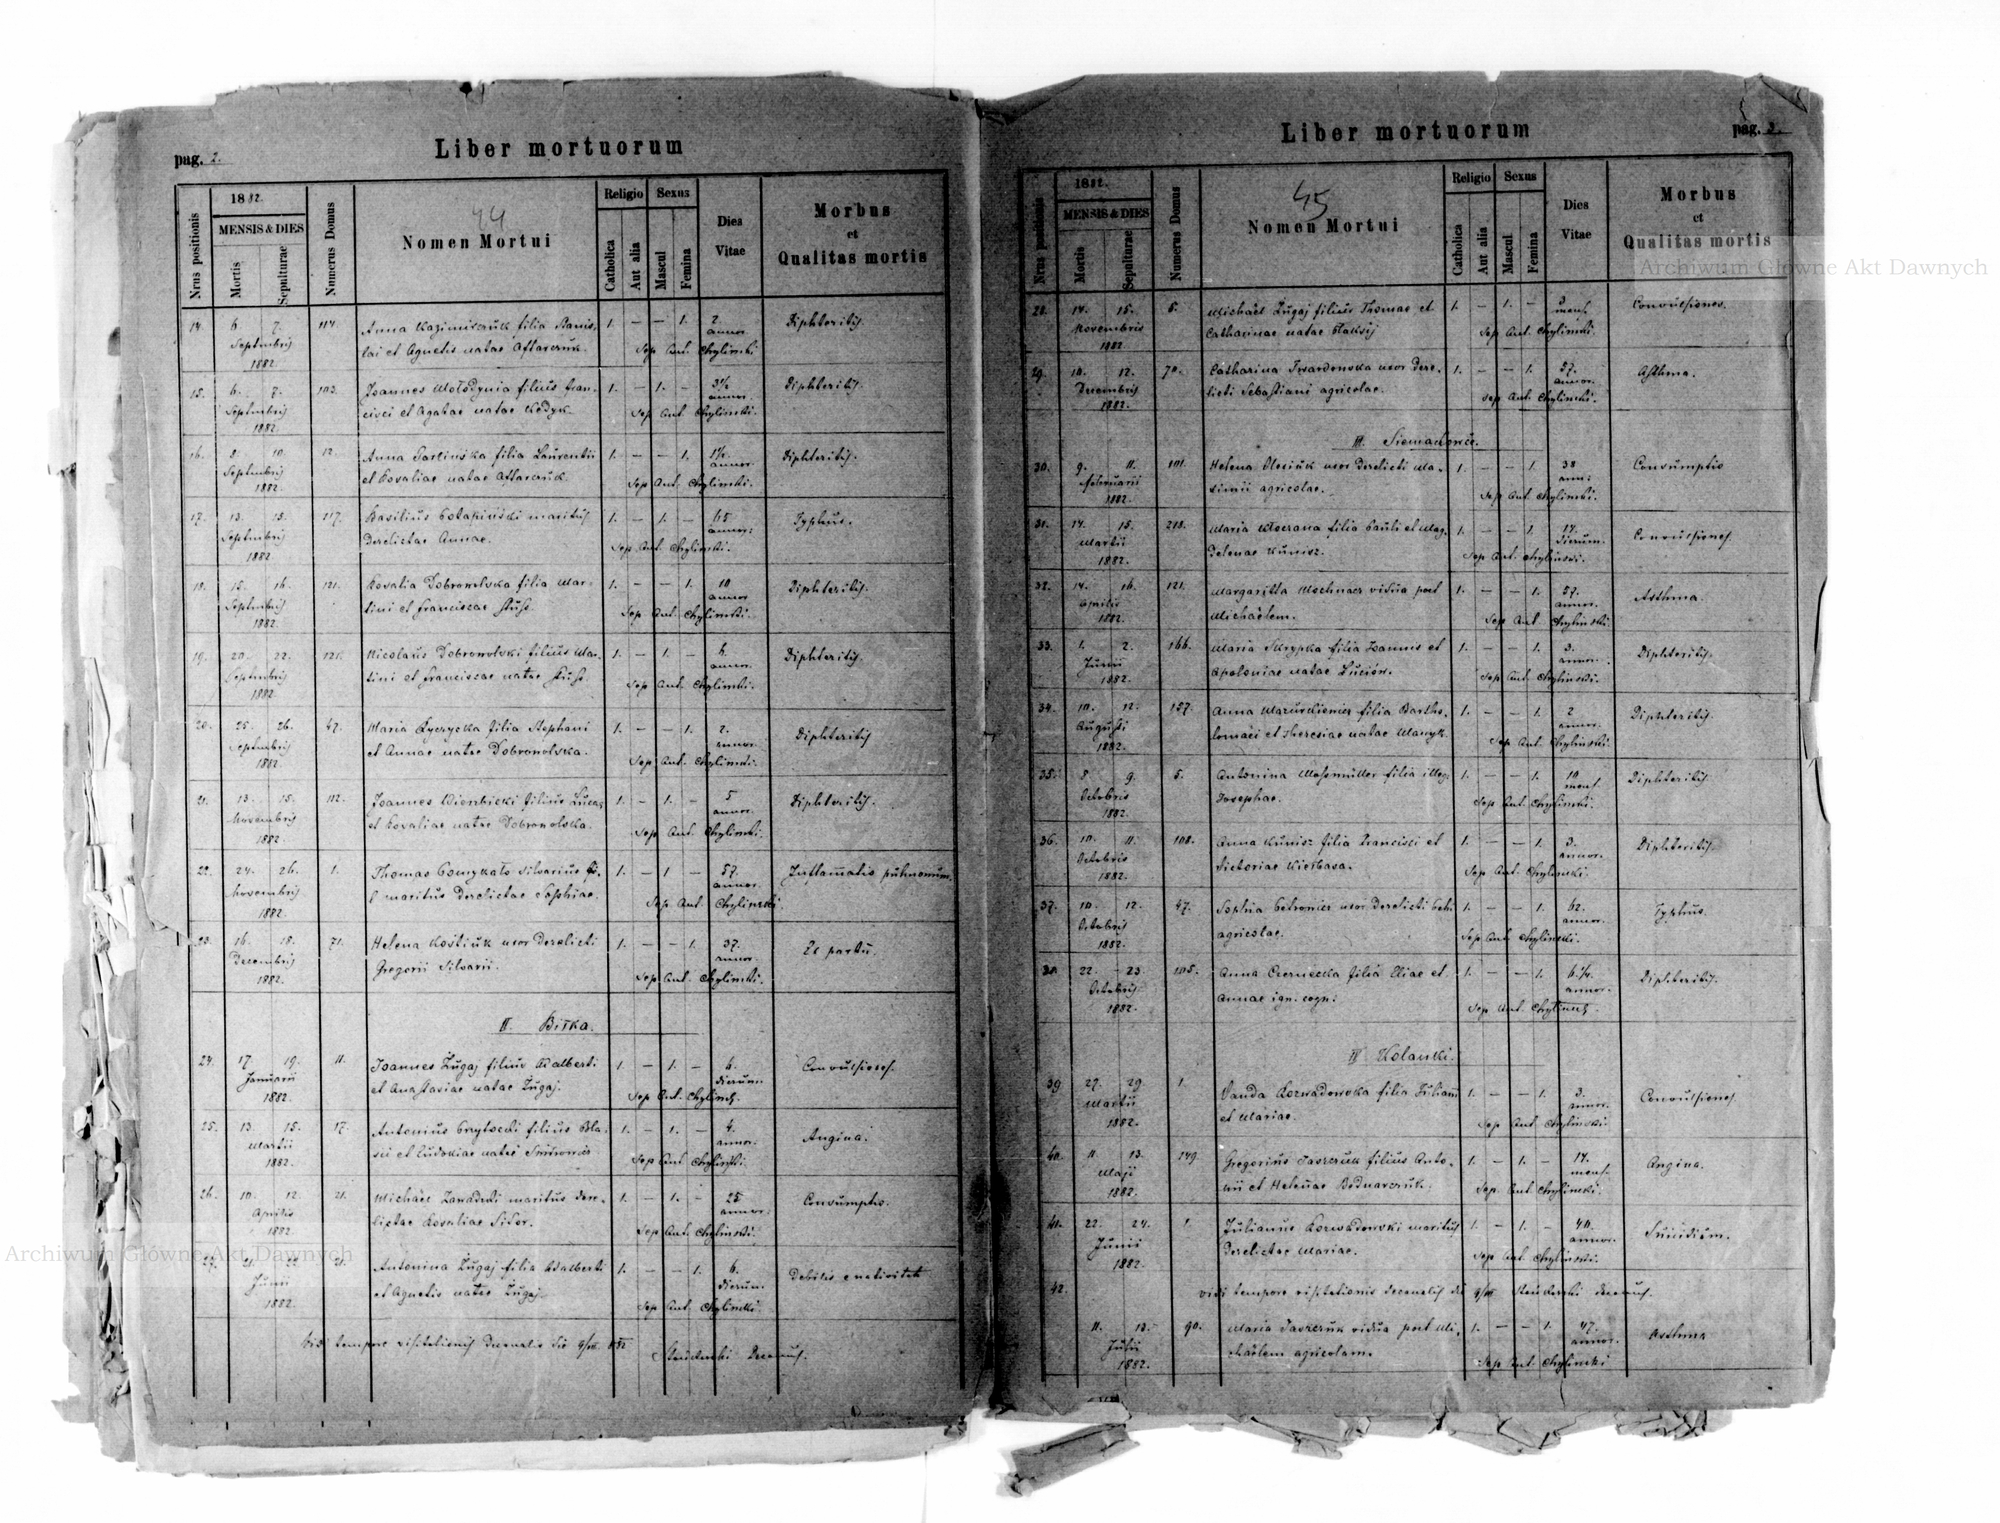 pag. 2.
Liber mortuorum
44
Nrus positionis
1882.
MENSIS & DIES
Mortis
Sepulturae
Numerus Domus
Nomen Mortui
Religio
Catholica
Aut alia
Sexus
Mascul
Femina
Dies
Vitae
Morbus
et
Qualitas mortis
14. 6. 7. 114. Anna Kazimirczuk filia Stanis- 1. — — 1. 2. Diphteritis.
Septembris lai et Agnetis natae annor.
1882. Sep Ant Chylinski
15. 6. 7. 103. Joannes Wołodynia filius Fran- 1. — 1. — 3½ Diphteritis
Septembris cisci et Agatae natae Kedyk. annor.
1882. Sep Ant Chylinski.
16. 8. 10. 12. Anna filia Laurentii 1. — — 1. 1½ Diphteritis.
Septembris et Rosaliae natae annor.
1882. Sep Ant. Chylinski.
17. 13. 15. 117. Basilius maritus 1. — 1. — 65 Typhus.
Septembris Derelictae Annae. annor:
1882. Sep Ant. Chylinski.
18. 15. 16. 121. Rosalia Dobrowolska filia Mar- 1. — — 1. 10 Diphteritis.
Septembris tini et Franciscae annor
1882. Sep Ant. Chylinski.
19. 20. 22. 121. Nicolaus Dobrowolski filius Mar- 1. — 1. — 6. Diphteritis.
Septembris tini et Franciscae natae annor.
1882. Sep Ant. Chylinski.
20. 25. 26. 47. Maria filia Stephani 1. — — 1. 2. Diphteritis
Septembris et Annae natae Dobrowolska. annor.
1882. Sep Ant. Chylinski.
21. 13. 15. 112. Joannes Wierzbicki filius Lucae 1. — 1. — 5 Diphteritis.
Novembris et Rosaliae natae Dobrowolska. annor.
1882. Sep Ant. Chylinski.
22. 24. 26. 1. Thomas silvarius 1. — 1 — 57. Inflamatio pulmonum.
Novembris maritus Derelictae Sophiae. annor.
1882. Sep Ant. Chylinski
23. 16. 18. 71. Helena Kostiuk uxor Derelicti 1. — — 1. 37. Ex partu.
Decembris Gregorii Silvarii. annor.
1882. Sep Ant. Chylinski.
II. Biłka.
24. 17. 19. 11. Joannes Zugaj filius Adalberti 1. — 1. — 6. Convulsiones.
Januarii et Anastasiae natae Zugaj. dierum.
1882. Sep Ant.
25. 13. 15. 17. Antonius filius Bla- 1. — 1. — 4. Angina.
Martii sii et Eudokiae natae annor.
1882. Sep Ant Chylinski.
26. 10. 12. 21. Michael Zawadzki maritus dere- 1. — 1. — 25 Consumptio.
Aprilis lictae Rosaliae annor.
1882. Sep Ant. Chylinski.
27. 21. 22. 21. Antonina Zugaj filia Adalberti 1. — — 1. 6. Debilis e nativitate
Junii et Agnetis natae Zugaj. dierum.
1882. Sep Ant. Chylinski.
Vidi tempore visitationis Decanalis die 9/VII. 1882
Decanus.
Liber mortuorum
pag. 3.
45
Nrus positionis
1882.
MENSIS & DIES
Mortis
Sepulturae
Numerus Domus
Nomen Mortui
Religio
Catholica
Aut alia
Sexus
Mascul
Femina
Dies
Vitae
Morbus
et
Qualitas mortis
28. 14. 15. 6. Michael Zugaj filius Thomae et 1. — 1. — Convulsiones.
Novembris Catharinae natae mens.
1882 Sep Ant. Chylinski.
29. 10. 12. 70. Catharina Twardowska uxor Dere- 1. — — 1. 57. Asthma.
Decembris licti Sebastiani agricolae. annor.
1882. Sep Ant. Chylinski.
III. Siemakowce.
30. 9. 11. 101. Helena Olesiuk uxor Derelicti Ma- 1. — — 1. 38 Consumptio
Februarii ximii agricolae. ann:
1882. Sep Ant. Chylinski.
31. 14. 15. 213. Maria filia Pauli et Mag- 1. — — 1. 14. Convulsiones
Martii delenae Kunisz. Dierum.
1882. Sep Ant. Chylinski.
32. 14. 16. 121. Margaritta Mochnacz vidua post 1. — — 1. 57. Asthma.
Aprilis Michaëlem. annor.
1882. Sep Ant Chylinski.
33. 1. 2. 166. Maria Skrypka filia Joannis et 1. — — 1. 3. Diphteritis.
Junii Apoloniae natae Lucion. annor.
1882. Sep Ant. Chylinski.
34. 10. 12. 157. Anna filia Bartho- 1. — — 1. 2 Diphteritis.
Augusti lomaei et Theresiae natae annor.
1882. Sep Ant. Chylinski.
35. 8. 9. 5. Antonina filia illeg. 1. — — 1. 10 Diphteritis
Octobris Josephae. mens.
1882. Sep Ant. Chylinski.
36. 10. 11. 108. Anna Kunisz filia Francisci et 1. — — 1. 3. Diphteritis.
Octobris Victoriae Kiełbasa. annor.
1882. Sep Ant. Chylinski.
37. 10. 12. 47. Sophia Petrowicz uxor Derelicti 1. — — 1. 62. Typhus.
Octobris agricolae. annor.
1882. Sep Ant Chylinski.
38. 22. 23. 105. Anna Czernecka filia Eliae et 1. — — 1. 6¼. Diphteritis.
Octobris Annae ign. cogn: annor.
1882. Sep Ant.
IV Kolanki.
39 27. 29. 1 Vanda Rozwadowska filia Juliani 1. — — 1. 3. Convulsiones
Martii et Mariae. annor.
1882. Sep Ant Chylinski.
40. 11. 13. 149. Gregorius Jaszczuk filius Anto- 1. — 1. — 14. Angina.
Maji nii et Helenae Bednarczuk. mens.
1882 Sep. Ant Chylinski.
41. 22. 24. 1 Julianus Rozwadowski maritus 1. — 1. — 40. Suicidium.
Junii Derelictae Mariae. annor.
1882 Sep Ant. Chylinski.
42. vidi tempore visitationis decanalis die 9/VII decanus.
11. 13. 90. Maria Jaszczuk vidua post Mi- 1. — — 1. 47. Asthma
Julii chaëlem agricolam. annor.
1882. Sep Ant. Chylinski
Archiwum Główne Akt Dawnych
Archiwum Główne Akt Dawnych